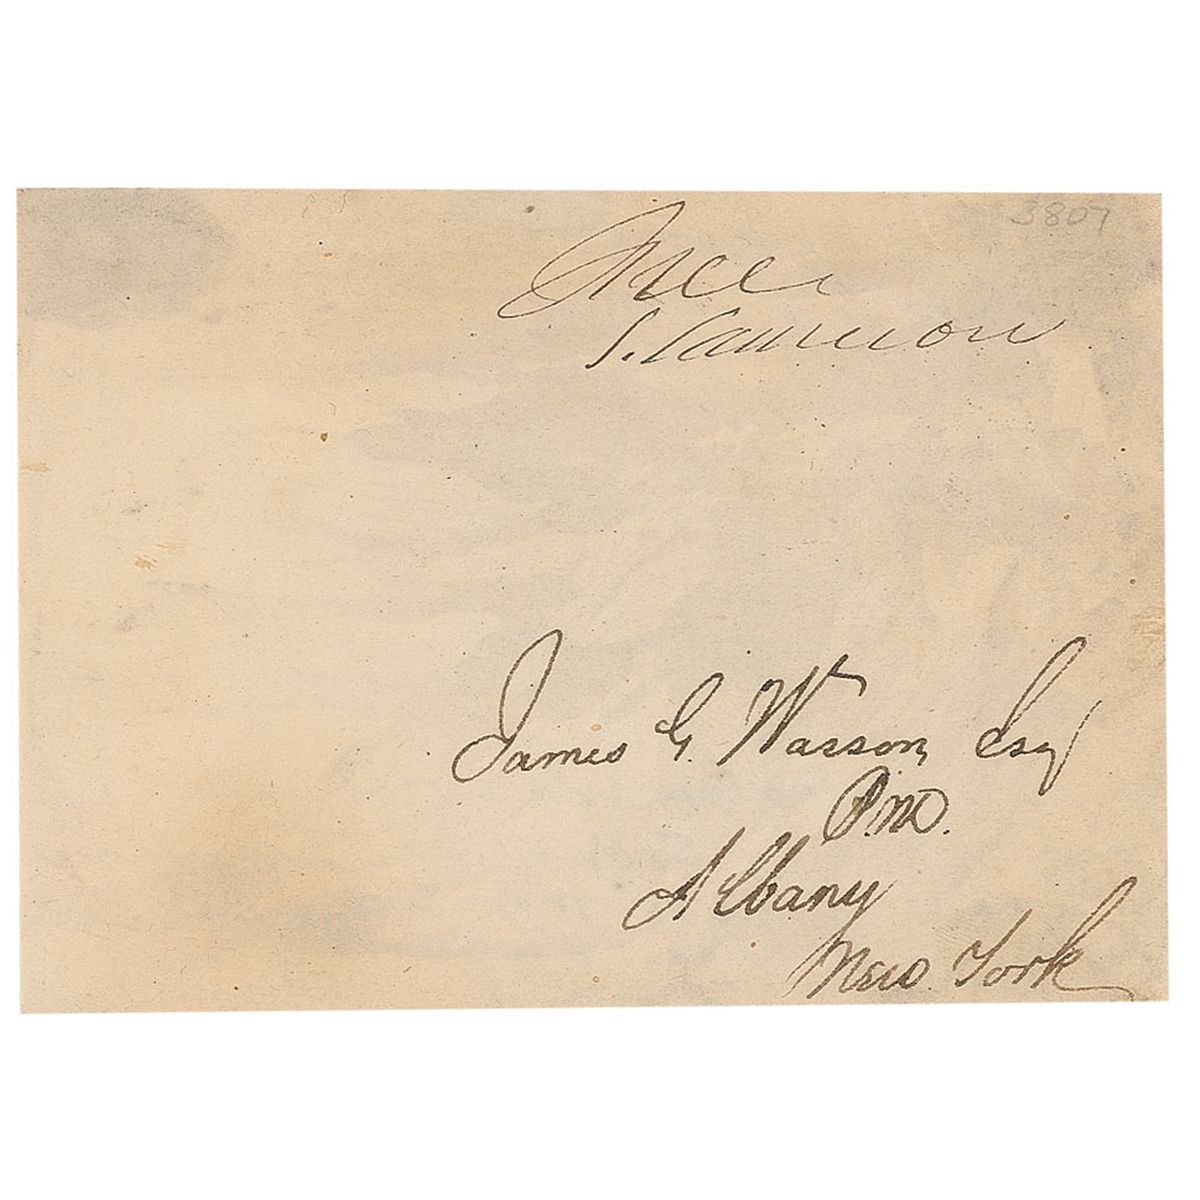 3807
Free
S. Cameron
James G. Wasson Esq
P.M.
Albany
New York